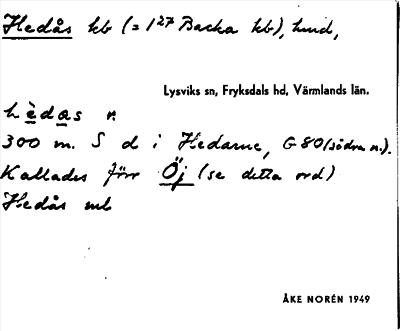 Hedås hb (= 1²⁷ Backa hb), hmd,
Lysviks sn, Fryksdals hd, Värmlands län.
hèdas n.
300 m. S d i Hedarne, G 80 (södra n.).
Kallades förr Öj (se detta ord)
Hedås
ÅKE NORÉN 1949